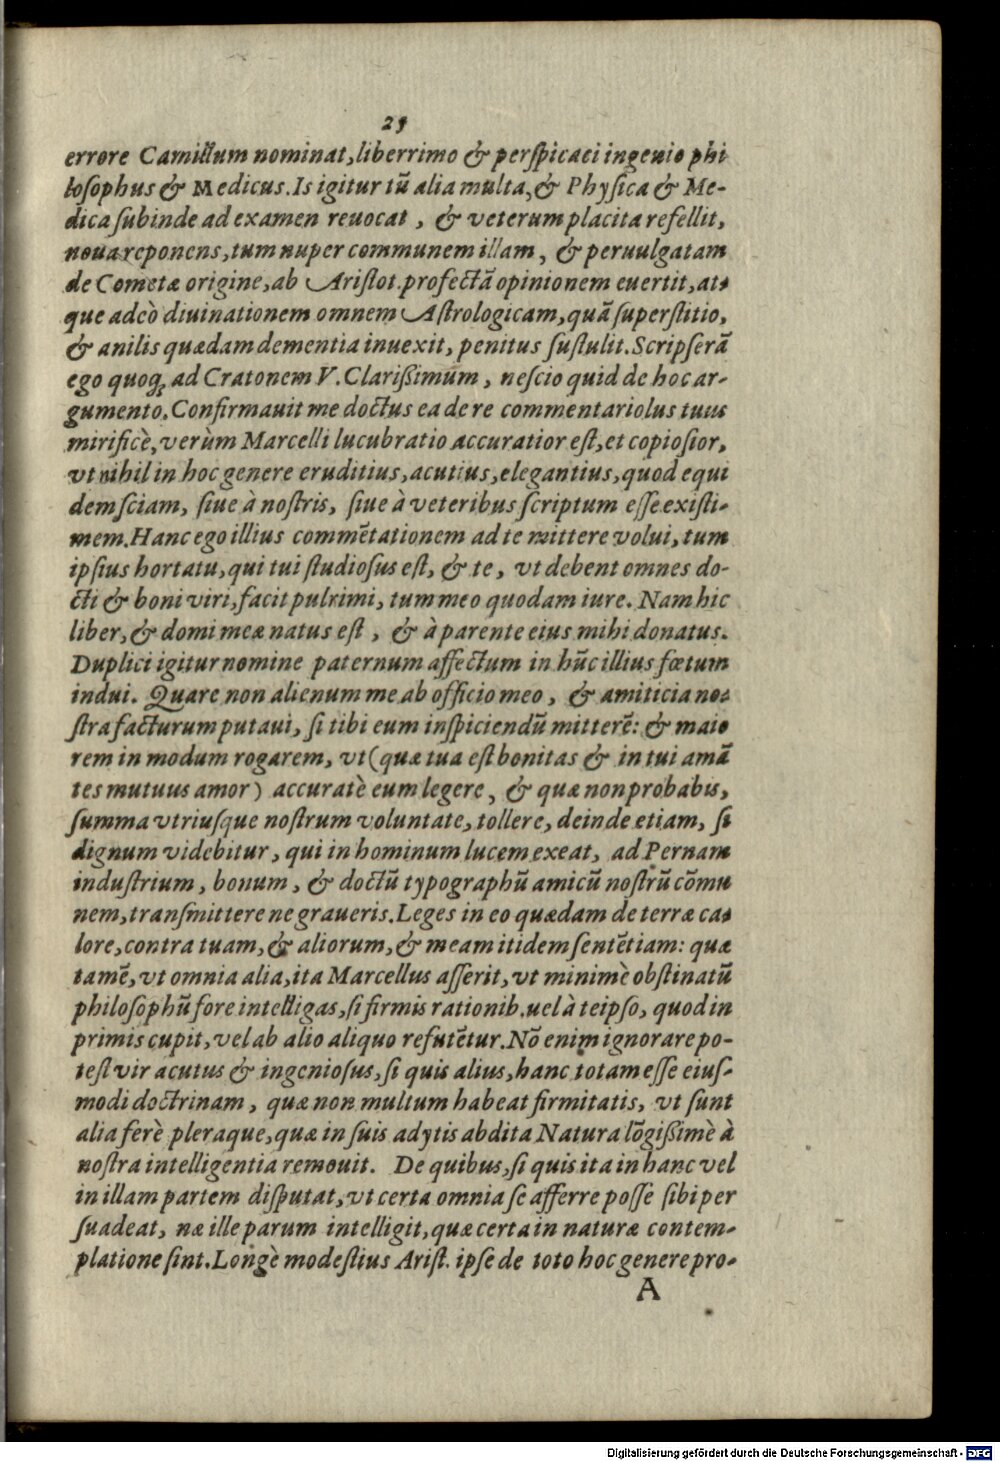 25
errore Camillum nominat, liberrimo & perſpicaci ingenio phi
loſophus & Medicus. Is igitur tũ alia multa, & Phyſica & Me-
dica ſubinde ad examen reuocat, & veterum placita refellit,
noua reponens, tum nuper communem illam, & peruulgatam
de Cometæ origine, ab Ariſtot. profectã opinionem euertit, at-
que adeò diuinationem omnem Aſtrologicam, quã ſuperſtitio,
& anilis quædam dementia inuexit, penitus ſuſtulit. Scripſerã
ego quoq; ad Cratonem V. Clarißimum, neſcio quid de hoc ar-
gumento. Confirmauit me doctus ea de re commentariolus tuus
mirificè, verùm Marcelli lucubratio accuratior eſt, et copioſior,
vt nihil in hoc genere eruditius, acutius, elegantius, quod equi
dem ſciam, ſiue à noſtris, ſiue à veteribus ſcriptum eſſe exiſti-
mem. Hanc ego illius commẽtationem ad te mittere volui, tum
ipſius hortatu, qui tui ſtudioſus eſt, & te, vt debent omnes do-
cti & boni viri, facit pulrimi, tum meo quodam iure. Nam hic
liber, & domi meæ natus eſt, & à parente eius mihi donatus.
Duplici igitur nomine paternum affectum in hũc illius fœtum
indui. Quare non alienum me ab officio meo, & amiticia no-
ſtra facturum putaui, ſi tibi eum inſpiciendũ mitterẽ: & maio
rem in modum rogarem, vt (quæ tua eſt bonitas & in tui amã
tes mutuus amor) accuratè eum legere, & quæ non probabis,
ſumma vtriuſque noſtrum voluntate, tollere, deinde etiam, ſi
dignum videbitur, qui in hominum lucem exeat, ad Pernam
induſtrium, bonum, & doctũ typographũ amicũ noſtrũ cõmu
nem, tranſmittere ne graueris. Leges in eo quædam de terræ ca-
lore, contra tuam, & aliorum, & meam itidem ſentẽtiam: quæ
tamẽ, vt omnia alia, ita Marcellus aſſerit, vt minimè obſtinatũ
philoſophũ fore intelligas, ſi firmis rationib. uel à teipſo, quod in
primis cupit, vel ab alio aliquo refutẽtur. Nõ enim ignorare po-
teſt vir acutus & ingenioſus, ſi quis alius, hanc totam eſſe eiuſ-
modi doctrinam, quæ non multum habeat firmitatis, vt ſunt
alia ferè pleraque, quæ in ſuis adytis abdita Natura lõgißimè à
noſtra intelligentia remouit. De quibus, ſi quis ita in hanc vel
in illam partem diſputat, vt certa omnia ſe afferre poſſe ſibi per
ſuadeat, næ ille parum intelligit, quæ certa in naturæ contem-
platione ſint. Longè modeſtius Ariſt. ipſe de toto hoc genere pro-
A
Digitalisierung gefördert durch die Deutsche Forschungsgemeinschaft - DFG